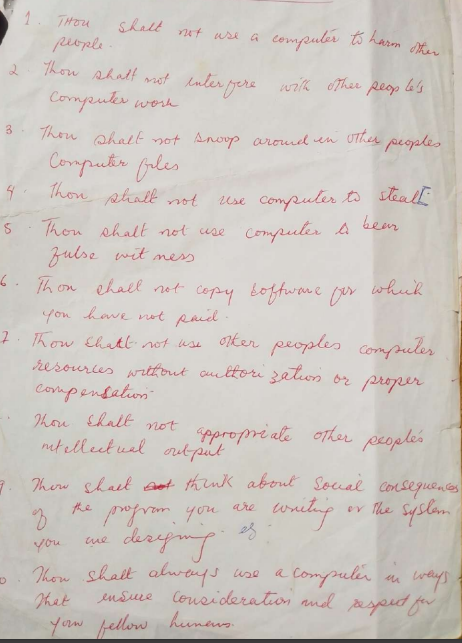 1. Thou shalt not use a computer to harm other
people.
2. Thou shalt not interfere with other people's
Computer work
3. Thou shalt not snoop around in other peoples
Computer files
4 Thou shalt not use computer to steal
5. Thou shalt not use computer to bear
false witness
6. Thou shall not copy software for which
you have not paid.
7. Thou shalt not use other peoples computer
resources without authorization or proper
compensation.
Thou shalt not appropriate other people's
intellectual output
9. Thou shalt not think about social consequences
of the program you are writing or the system
you are designing.
Thou shalt always use a computer in ways
that ensure consideration and respect for
your fellow humans.